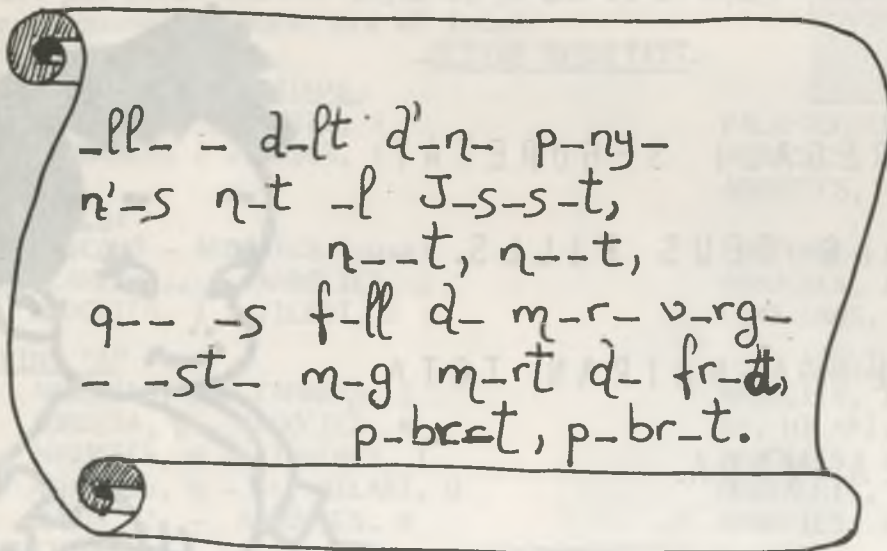 _ll_ _ d_lt d'_n_ p_ny_
n'_s n_t _l J_s_s_t,
n__t, n__t,
q__ _s f_ll d_ m_r_ v_rg_
_ _st_ m_g m_rt d_ fr_d,
p_br__t, p_br_t.